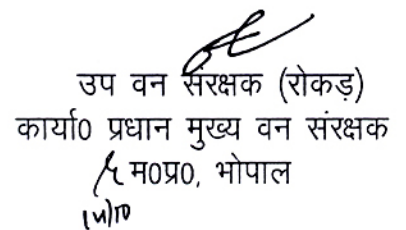 उप वन संरक्षक (रोकड़)
कार्या0 प्रधान मुख्य वन संरक्षक
म0प्र0, भोपाल